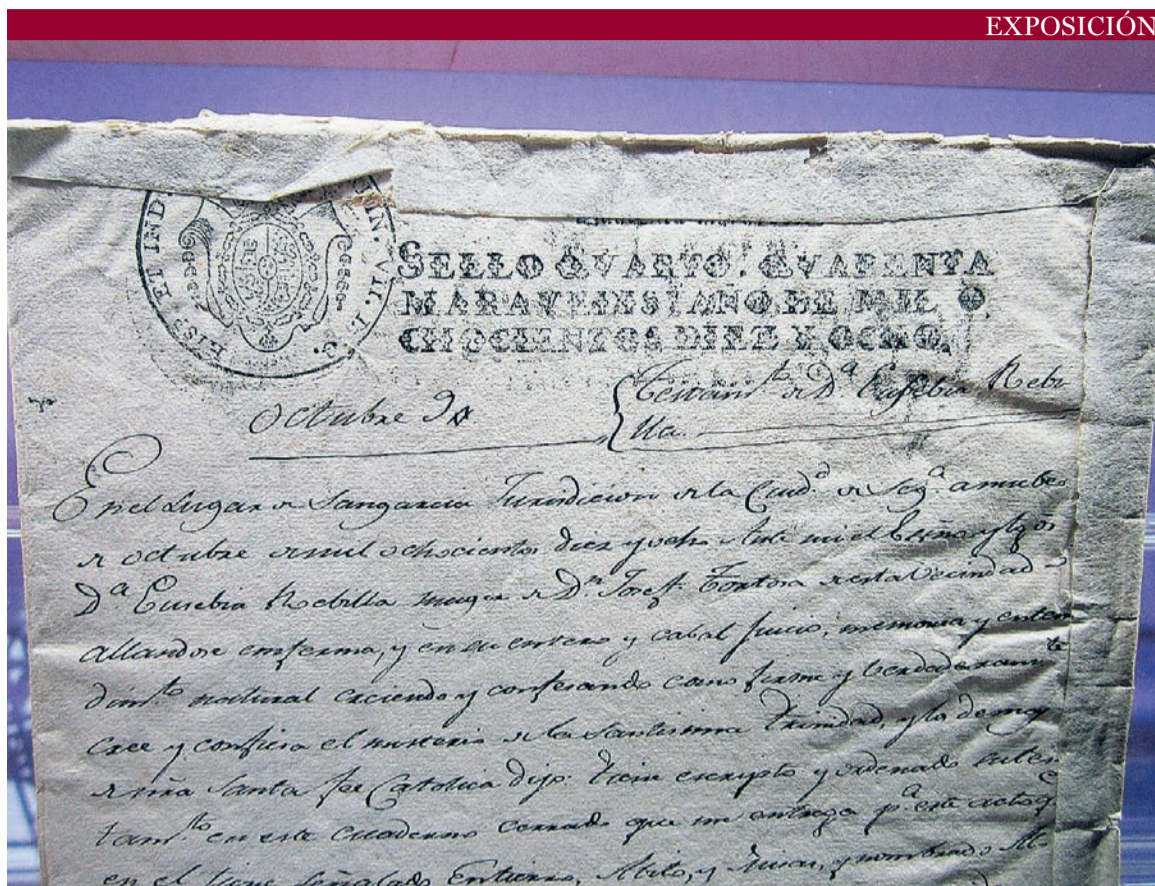 EXPOSICIÓN
EIS. ET IND.
SELLO QVARTO, QVARENTA
MARAVEDIS, AÑO DE MIL O
CHOCIENTOS DIEZ Y OCHO.
Octubre 9
Testam.to de D.a Eusebia Rebi
lla.
En el Lugar de Sangarcia Jurisdicion de la Ciud.d de Seg.a a nuebe
de octubre de mil ochocientos diez y ocho Ante mi el Essno y tgos
D.a Eusebia Rebilla muger de D.n Josef Tortosa de esta Vecindad
allandose enferma, y en su entero y cabal juicio, memoria y enten
dim.to natural creiendo y confesando como firme y berdaderam.te
cree y confiesa el misterio de la Santisima trinidad, y lo demas
de nra Santa fee Catolica dijo: tiene escripto y ordenado su tes
tam.to en este cuaderno cerrado que me entrega p.a este acto q.e
en el tiene señalado Entierro, Abito, y Misas, y nombrado Al-